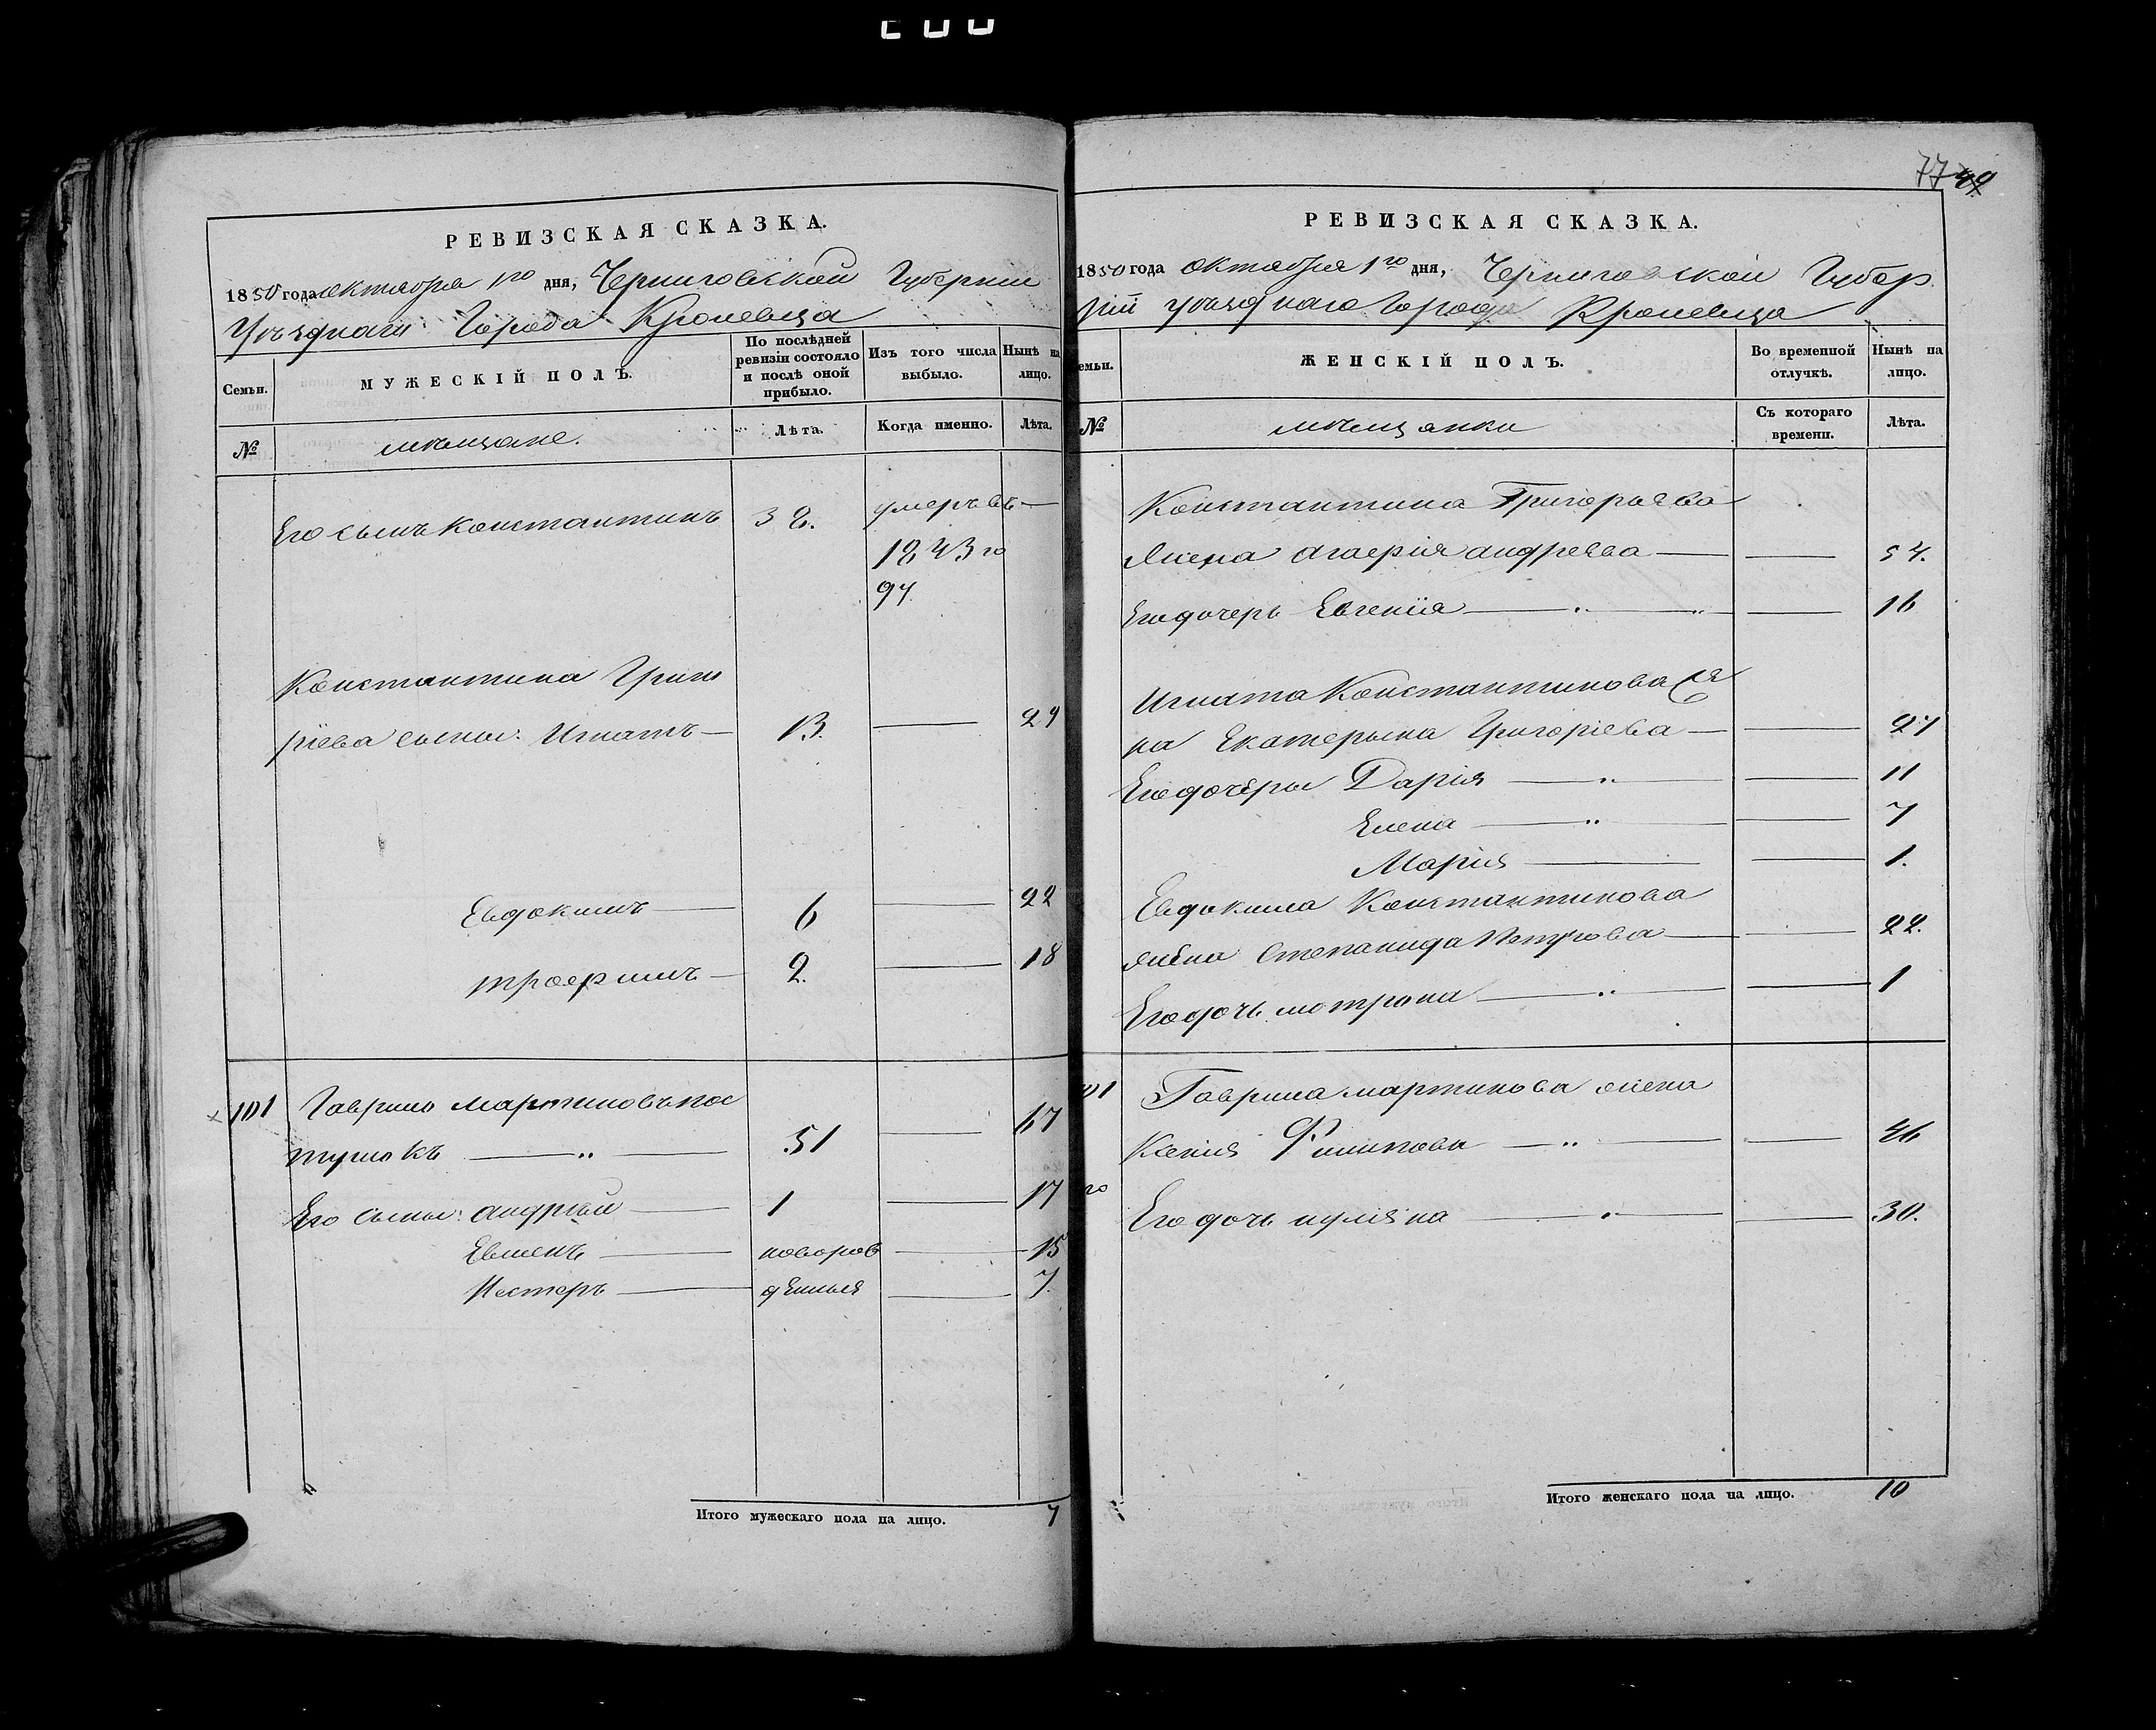 77 49
РЕВИЗСКАЯ СКАЗКА.
1850 года октября 1го дня, Черниговской Губернии
Уѣзднаго Города Кролевца
Семьи.
МУЖЕСКІЙ ПОЛЪ.
По послѣдней ревизіи состояло и послѣ оной прибыло.
Изъ того числа выбыло.
Нынѣ на лицо.
№
мѣщане.
Лѣта.
Когда именно.
Лѣта.
Его сынъ Константинъ 38. умеръ въ —
1843 го
Константина Григо
ріева сыны: Игнатъ — 13. — 29
Евдокимъ — 6 — 22
трофимъ — 2. — 18
101 Гаврило Мартиновъ пос
тушокъ — „ — 51 — 67
Его сыны: андрѣй — 1 — 17
Евменъ — новорож — 15
Нестеръ — денныя — 7.
Итого мужескаго пола на лицо. 7
РЕВИЗСКАЯ СКАЗКА.
1850 года октября 1го дня, Черниговской Губер
ніи уѣзднаго Города Кролевца
емьи.
ЖЕНСКІЙ ПОЛЪ.
Во временной отлучкѣ.
Нынѣ на лицо.
№
мѣщанки
Съ котораго времени.
Лѣта.
Константина Григорьева
жена агафія андреева — — 54.
Его дочерь Евгенія — „ — — 16
Игната Константинова же
на Екатерына Григоріева — — 27
Его дочеры Дарія — „ — — 11
Елена — „ — — 7
Марія — — 1.
Евдокима Константинова
жена Степанида Петрова — — 22.
Его дочь мотрона — „ — — 1
101 Гаврила мартинова жена
Ксенія Филипова — „ — — 46
Его дочь уляна — „ — — 30.
Итого женскаго пола на лицо. 10